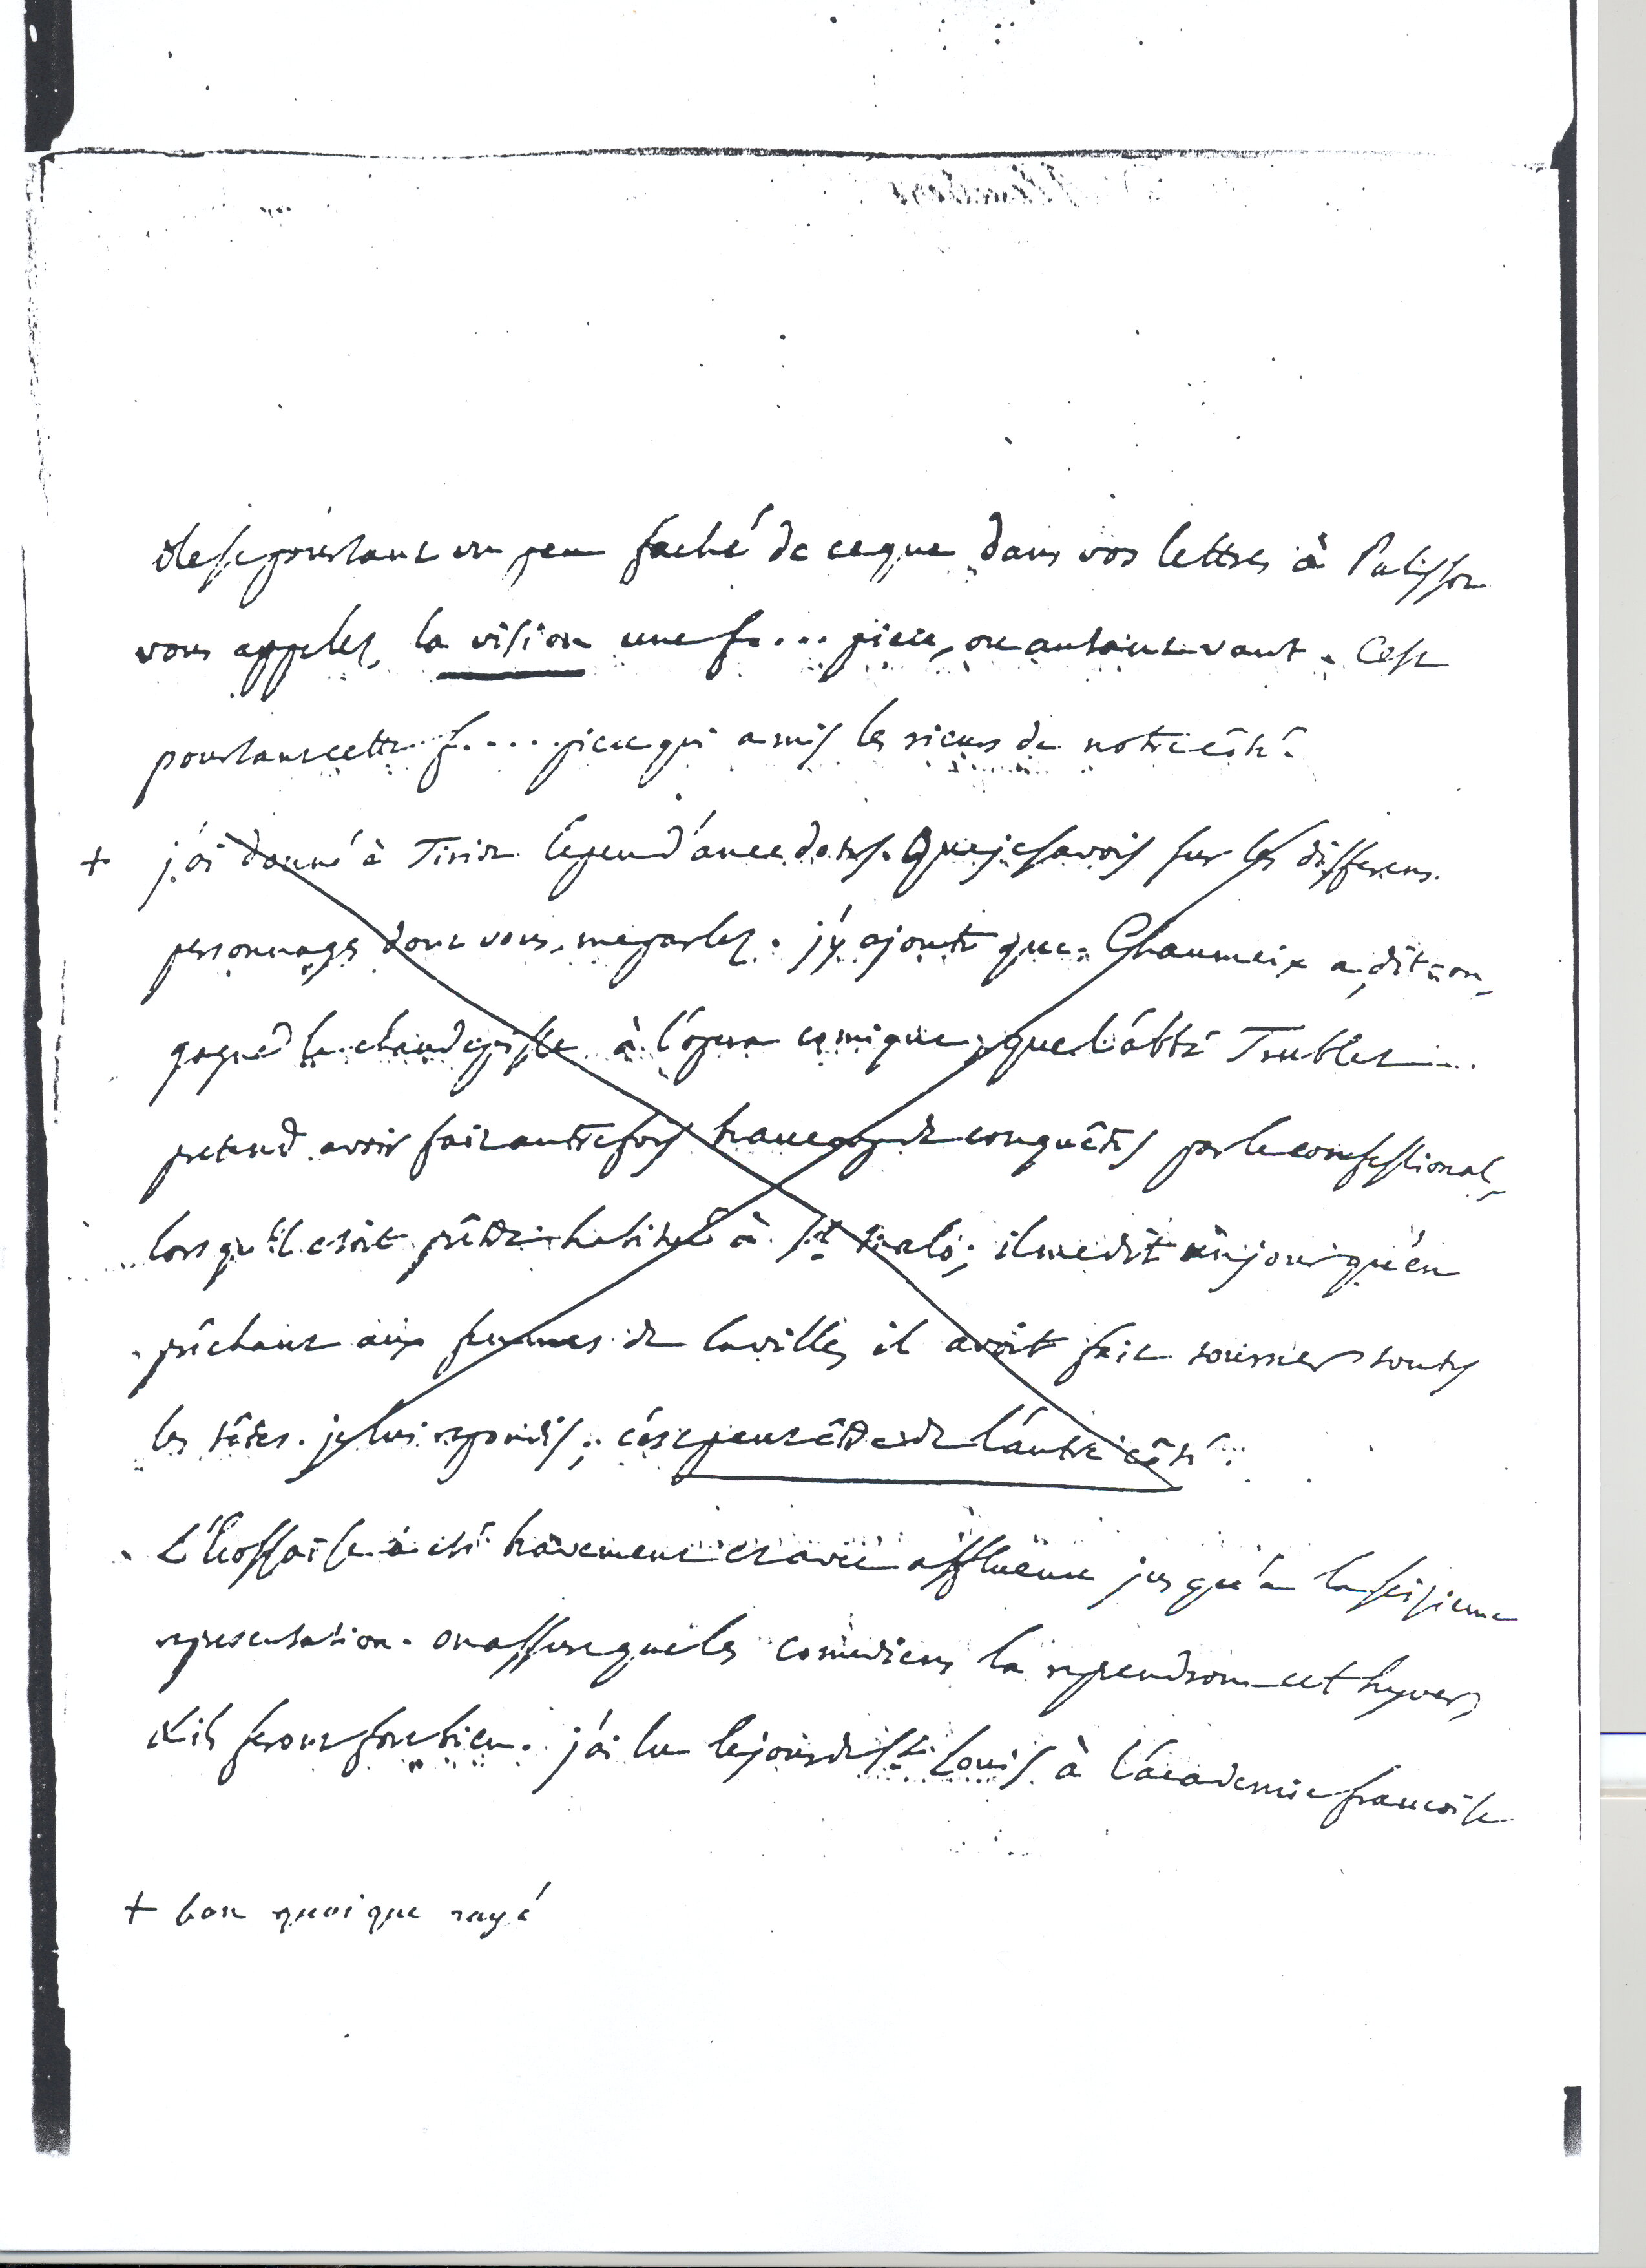 il est pourtant un peu faché de ce que dans vos lettres à Palissot
vous appellez la vision une f.... piece, ou autant vaut. C'est
pourtant cette f..... piece qui a mis les rieurs de notre côté.
+ j'ai donné à Tiriot le peu d'anecdotes que je savois sur les differens
personnages dont vous me parlez. j'y ajoute que Chaumeix a, dit-on,
gagné la chaudepisse à l'opera comique, que l'abbé Trublet
pretend avoir fait autrefois beaucoup de conquêtes par le confessional,
lorsqu'il etoit prêtre habitué à St Malo; il me dit un jour qu'en
prêchant aux femmes de la ville, il avoit fait tourner toutes
les têtes. je lui repondis; c'est peut être de l'autre côté.
L'Ecossaise a eté bravement et avec affluence jusqu'à la seizieme
representation. on assure que les comediens la reprendront cet hyver,
et ils feront fort bien. j'ai lu le jour de St Louis à l'academie francoise
+ bon quoique rayé